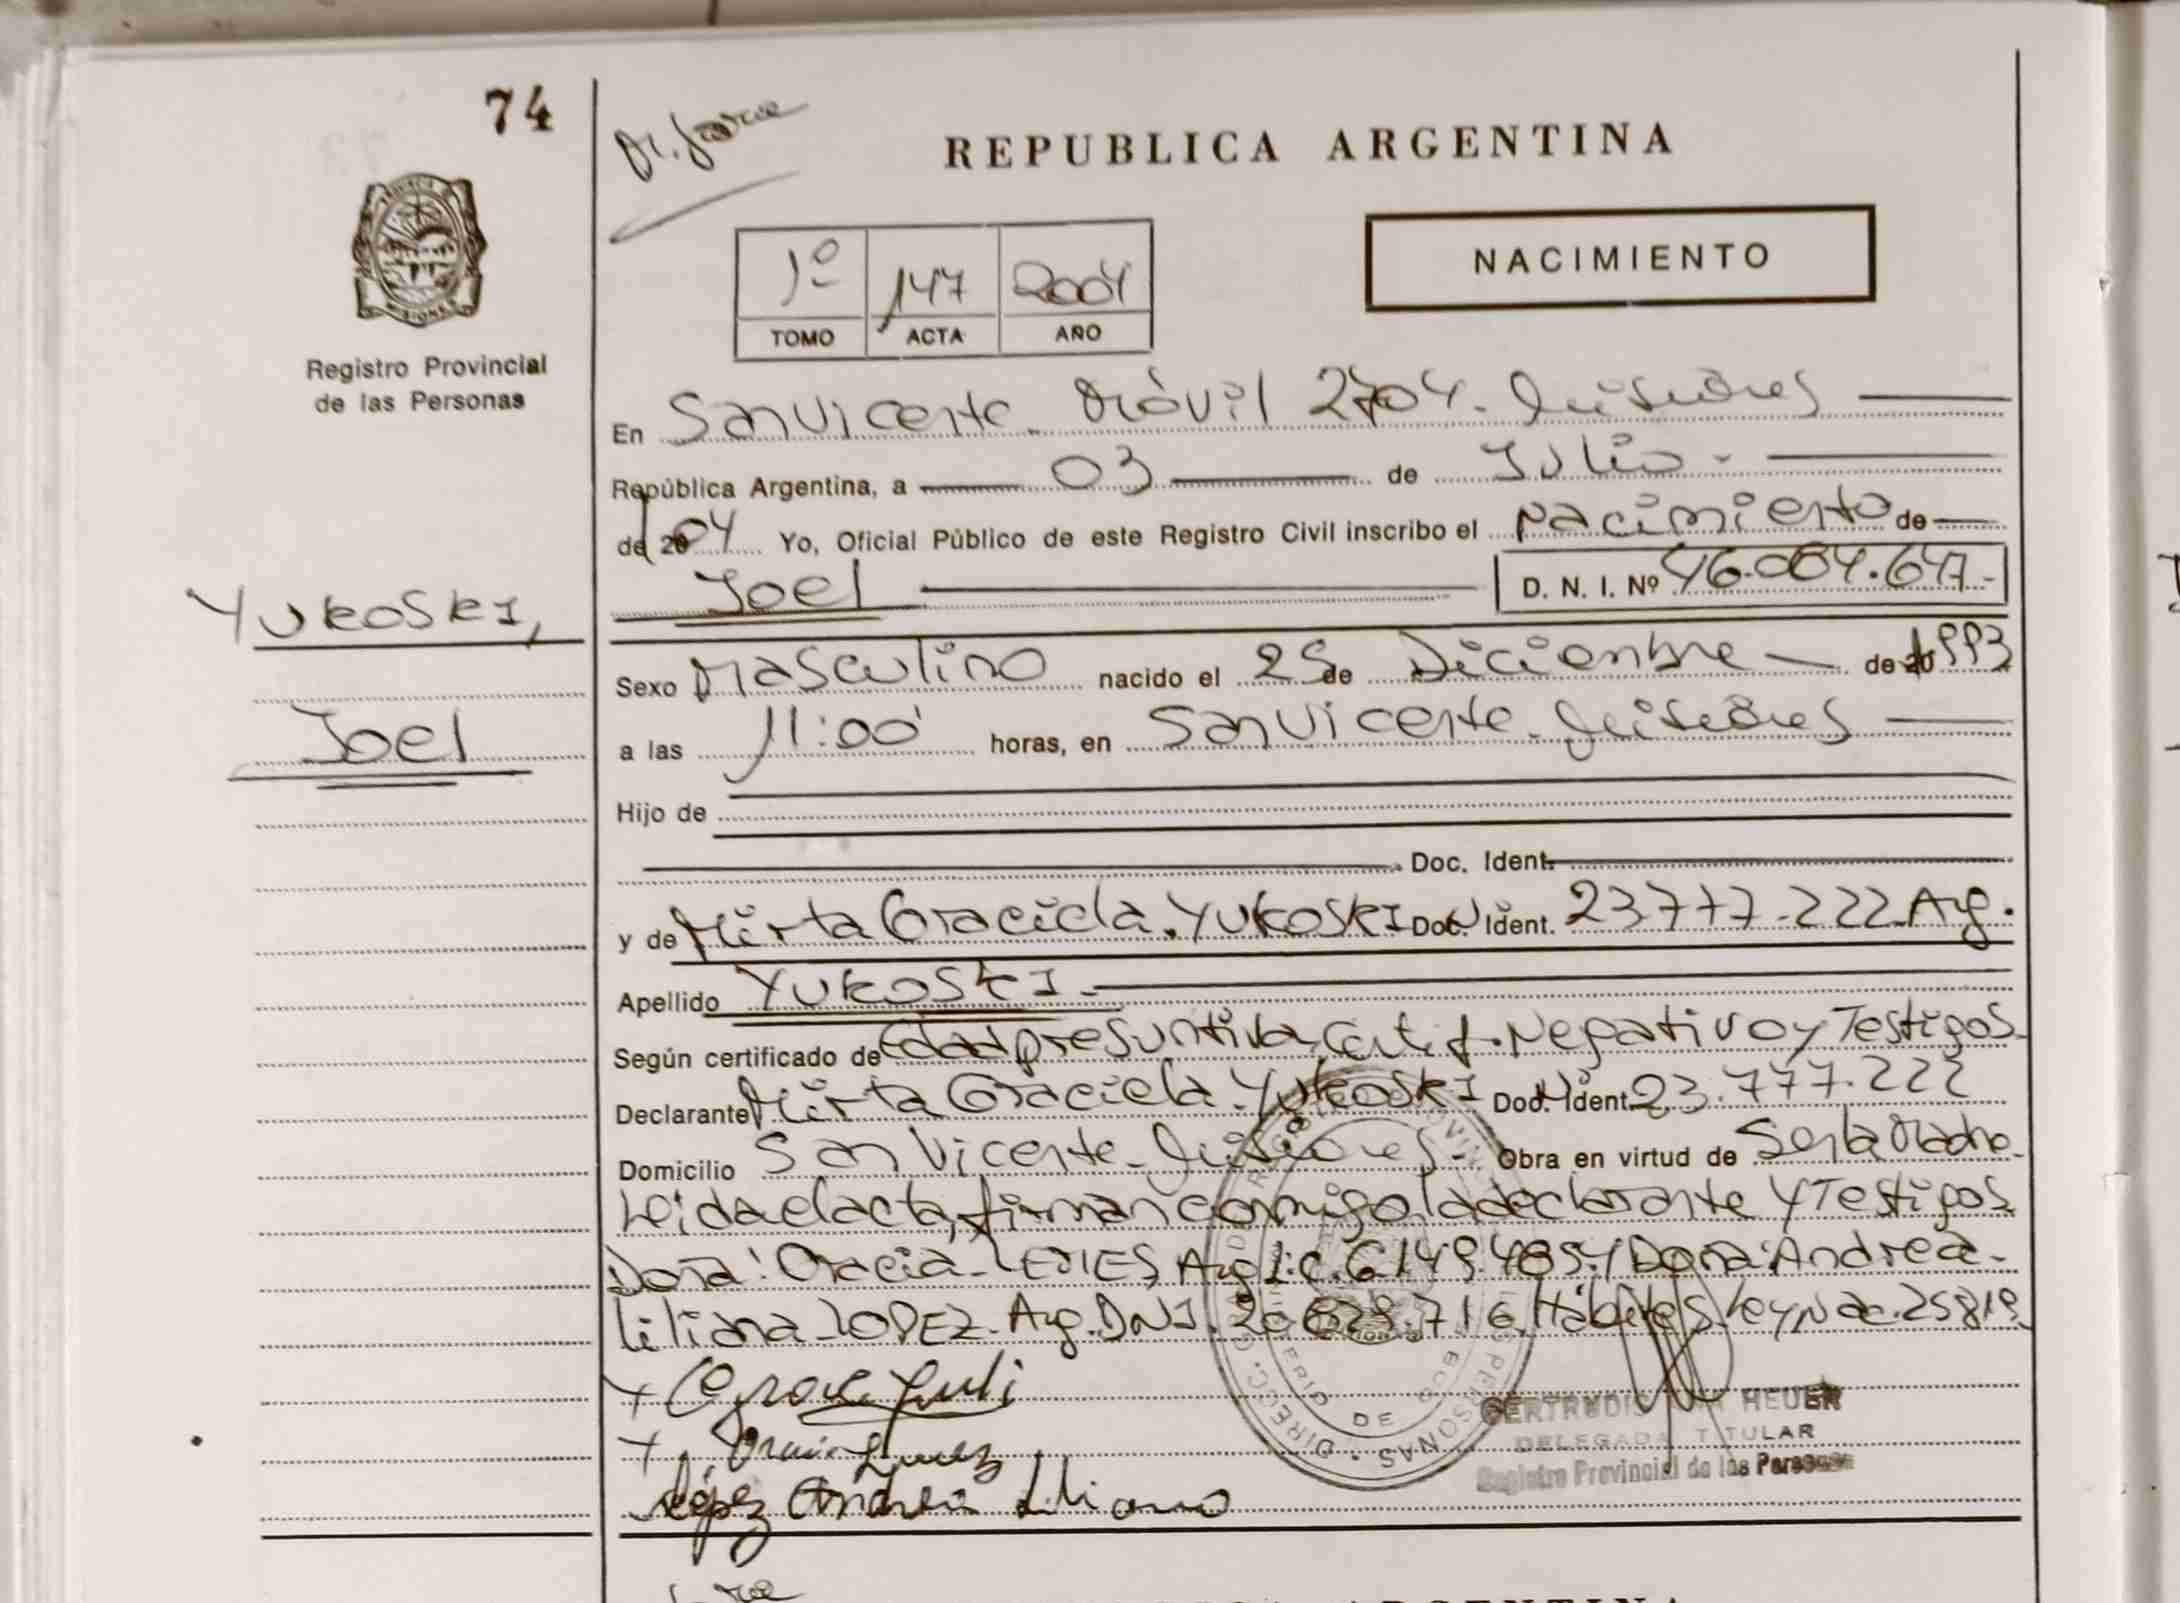 74
REPUBLICA ARGENTINA
NACIMIENTO
1º 147 2004
TOMO ACTA AÑO
Registro Provincial
de las Personas
En San Vicente - Móvil 2704 - Misiones
República Argentina, a 03 de Julio -
de 2004 Yo, Oficial Público de este Registro Civil inscribo el Nacimiento de
Joel D. N. I. Nº 46.084.647-
YUKOSKI,
Joel
Sexo Masculino nacido el 25 de Diciembre de 1993
a las 11:00 horas, en San Vicente - Misiones
Hijo de
Doc. Ident.
y de Mirta Graciela YUKOSKI Doc. Ident. 23.777.222 Arg.
Apellido YUKOSKI -
Según certificado de Edad presuntiva, Certif. Negativo y Testigos
Declarante Mirta Graciela YUKOSKI Doc. Ident 23.777.222
Domicilio San Vicente - Misiones - Obra en virtud de Ser la Madre
Leída el acta, firman conmigo la declarante y Testigos
Doña: Arg L.C. y Doña: Andrea
Liliana LOPEZ. Arg. DNI. Hábiles Ley Nac. 25819
López Andrea Liliana
GERTRUDIS HEUER
DELEGADA TITULAR
Registro Provincial de las Personas